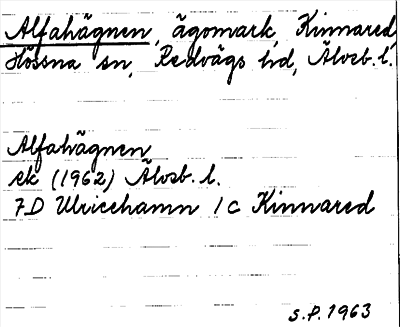 Alfahägnen, ägomark, Kinnared,
Hössna sn, Redvägs hd, Älvsb. l.
Alfahägnen
ek (1962) Älvsb. l.
7D Ulricehamn 1c Kinnared
S.P. 1963